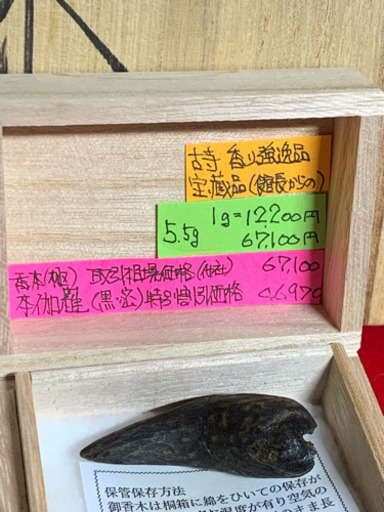 古寺 香り強逸品
宝蔵品(館長からの)
1g=12200円
5.5g 67,100円
香木(極) 取引相場価格(他社) 67,100
本伽羅(黒・密)特別割引価格 46,970
保管保存方法
御香木は桐箱に綿をひいての保存が
温度が有り空気の
のまま長